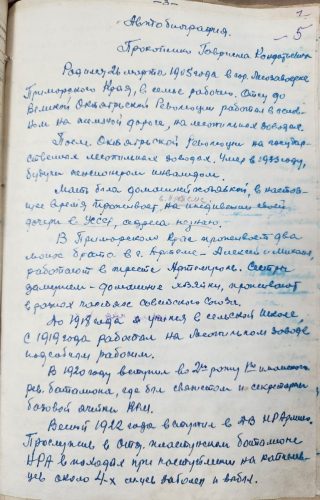 -3-
1
5
Автобиография.
Прокопенко Гавриила Кондратьевича
Родился 26 марта 1905 года в гор. Лесозаводске
Приморского Края, в семье рабочего. Отец до
Великой Октябрьской Революции работал в основ-
ном на железной дороге, на лесопильных заводах.
После Октябрьской Революции на государ-
ственных лесопильных заводах. Умер в 1933 году,
будучи пенсионером инвалидом.
Мать была домашней хозяйкой, в настоя-
щее время проживает на иждивении своей
дочери в УССР, адреса не знаю.
В Приморском крае проживает два
моих брата в г. Артеме - Алексей и Михаил,
работают в тресте Артемуголь. Сестры
замужем - домашние хозяйки, проживают
в разных частях Советского Союза.
До 1918 года я учился в сельской школе,
с 1919 года работал на лесопильном заводе
подсобным рабочим.
В 1920 году вступил во 2ю роту 1го
рев. батальона, где был связистом и секретарем
базовой ячейки
Весной 1922 года вступил в
Прослужил в батальоне
НРА в
около 4-х месяцев заболел и